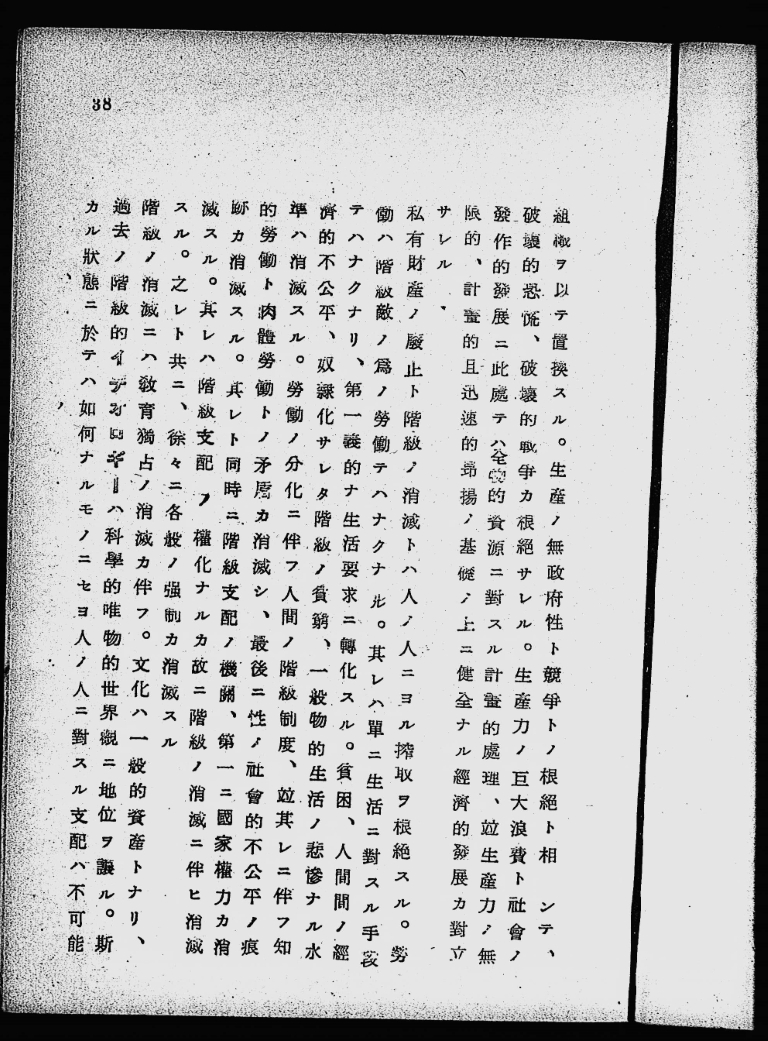 38
組織ヲ以テ置換スル。生産ノ無政府性ト競爭トノ根絶ト相　ンテ、
破壞的恐慌、破壞的戰爭カ根絶サレル。生產力ノ巨大浪費ト社會ノ
發作的發展ニ此處テハ全物的資源ニ對スル計畫的處理、竝生產力ノ無
限的、計畫的且迅速的昂揚ノ基礎ノ上ニ健全ナル經濟的發展カ對立
サレル、
私有財產ノ廢止ト階級ノ消滅トハ人ノ人ニヨル搾取ヲ根絶スル。勞
働ハ階級敵ノ爲ノ勞働テハナクナル。其レハ單ニ生活ニ對スル手段
テハナクナリ、第一義的ナ生活要求ニ轉化スル。貧困、人間間ノ經
濟的不公平、奴隷化サレタ階級ノ貧窮、一般物的生活ノ悲慘ナル水
準ハ消滅スル。勞働ノ分化ニ伴フ人間ノ階級制度、竝其レニ伴フ知
的勞働ト肉體勞働トノ矛盾カ消滅シ、最後ニ性ノ社會的不公平ノ痕
跡カ消滅スル。其レト同時ニ階級支配ノ機關、第一ニ國家權力カ消
滅スル。其レハ階級支配ノ權化ナルカ故ニ階級ノ消滅ニ伴ヒ消滅
スル。之レト共ニ、徐々ニ各般ノ强制カ消滅スル
階級ノ消滅ニハ敎育獨占ノ消滅カ伴フ。文化ハ一般的資產トナリ、
過去ノ階級的イデオロギーハ科學的唯物的世界觀ニ地位ヲ讓ル。斯
カル狀態ニ於テハ如何ナルモノニセヨ人ノ人ニ對スル支配ハ不可能